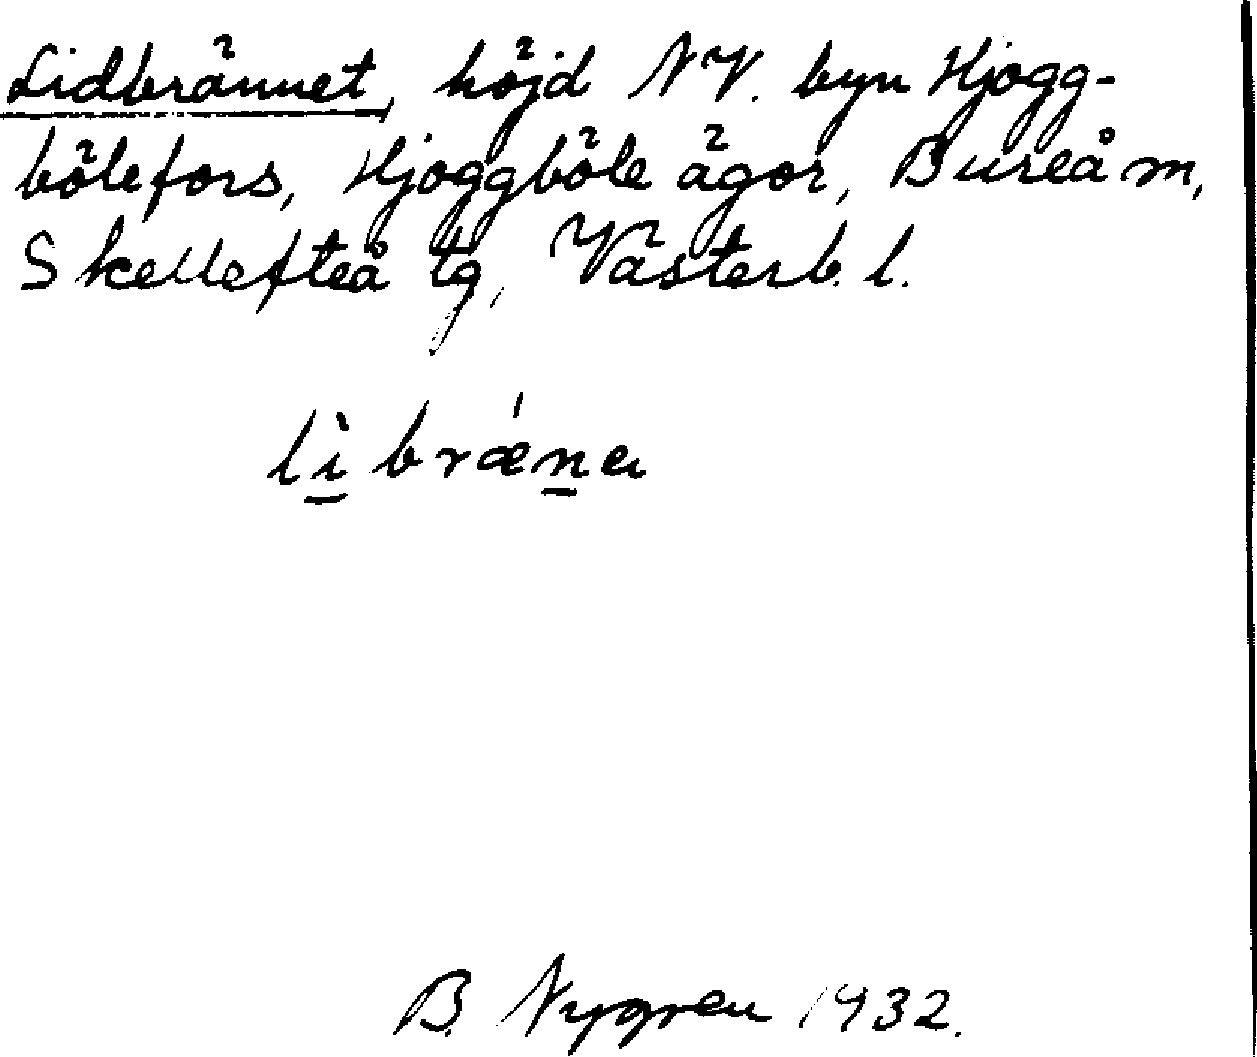 Lidbrännet, höjd NV. byn Hjogg-
bölefors, Hjoggböle ägor, Bureå m,
Skellefteå tg, Västerb. l.
lì bræ̀na
B. Nygren 1932.